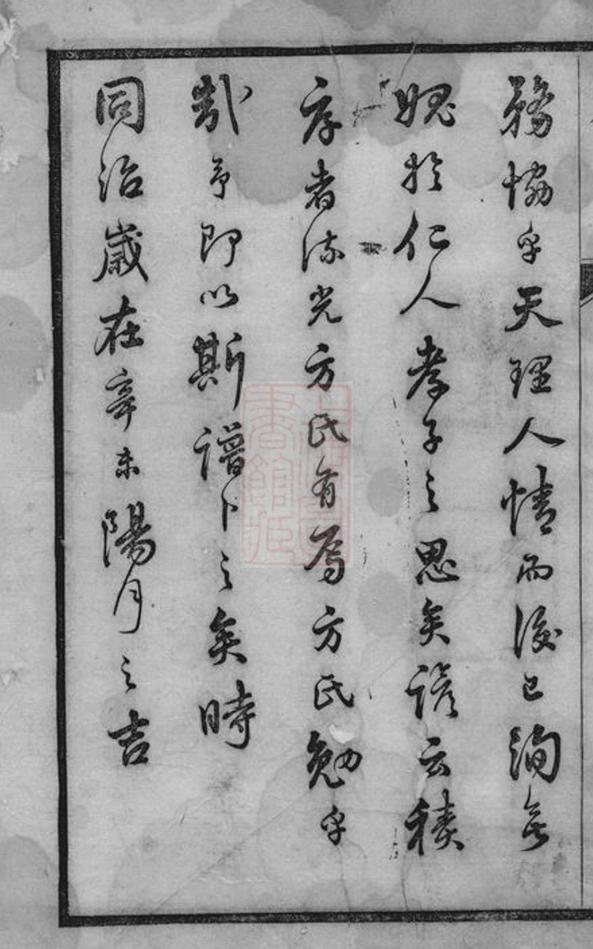 務協乎天理人情而後已洵無
愧於仁人孝子之思矣諺云積
厚者流光方氏有焉方氏勉乎
哉予即以斯譜卜之矣時
同治歲在辛未陽月之吉